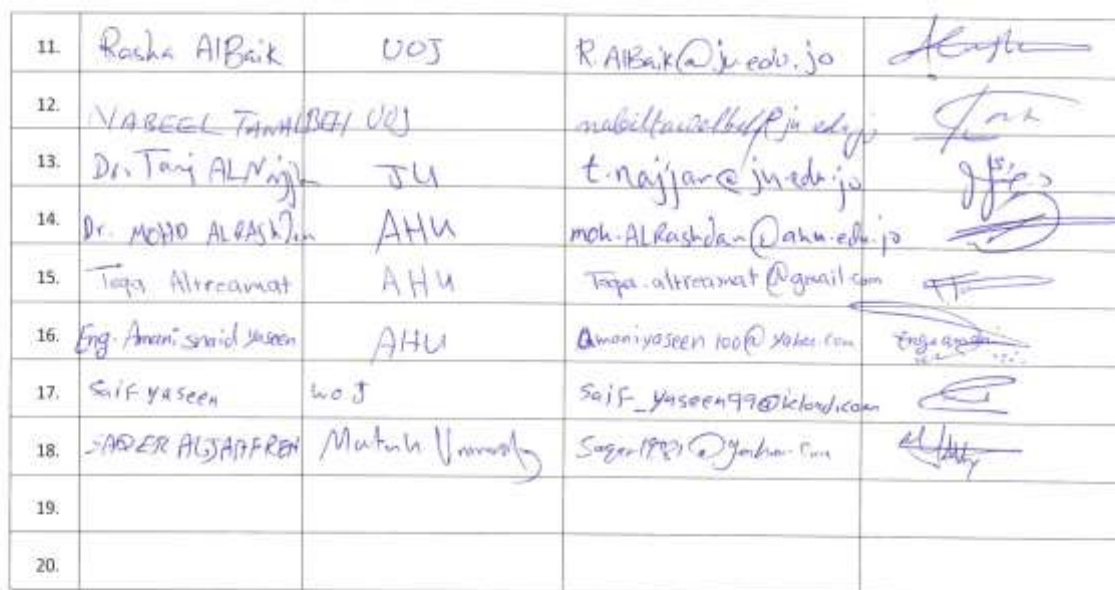 11. Rasha AlBaik UOJ R.AlBaik@ju.edu.jo
12. NABEEL TAWALBEH UOJ
13. Dr. Tariq ALNajjar JU t.najjar@ju.edu.jo
14. Dr. MOHD ALRAShDan AHU moh.ALRashdan@ahu.edu.jo
15. Toqa Altreeamat AHU Toqa.altreeamat@gmail.com
16. Eng. Amani snaid yaseen AHU Amaniyaseen100@yahoo.com
17. Saif yaseen UoJ Saif_yaseen99@icloud.com
18. SAQER ALJAAFREH Mutah University
19.
20.